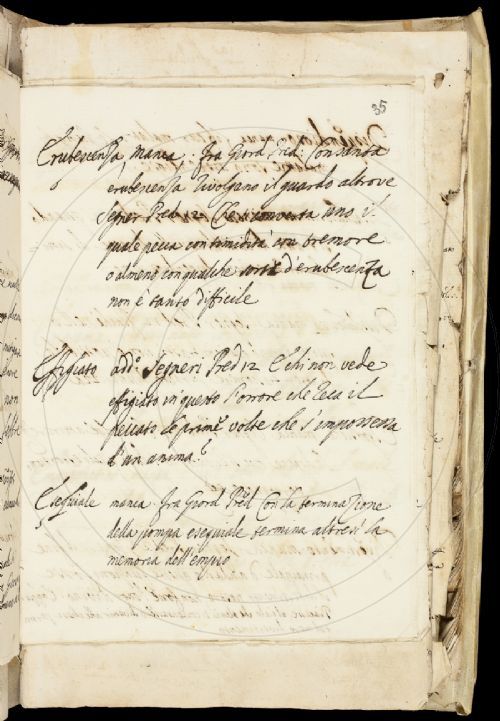 35
Erubescenza, manca. Fra Giord. Pred. Con tenera
erubescenza rivolgano il guardo altrove
Segner. Pred. 12. Che si converta uno, il
quale pecca con timidità, con tremore
o almeno con qualche sorta d'erubescenza
non è tanto difficile
Effigiato add.o Segneri Pred. 12 E chi non vede
effigiato in questo l'orrore che reca il
peccato le prime volte che s'impossessa
d'un anima?
Esequiale manca. Fra Giord. Pred. Con la terminazione
della pompa esequiale termina altresì la
memoria dell'empio